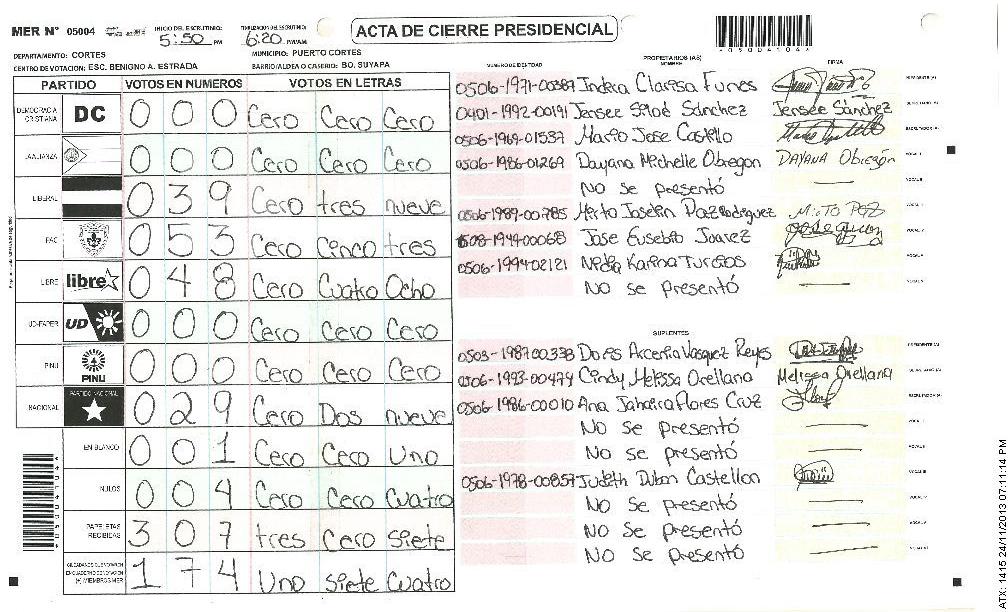 MER Nº 05004 INICIO DEL ESCRUTINIO: 5:50 PM FINALIZACION DEL ESCRUTINIO: 6:20 PM/AM
ACTA DE CIERRE PRESIDENCIAL
DEPARTAMENTO: CORTES MUNICIPIO: PUERTO CORTES
CENTRO DE VOTACION: ESC. BENIGNO A. ESTRADA BARRIO/ALDEA O CASERIO: BO. SUYAPA
PARTIDO VOTOS EN NUMEROS VOTOS EN LETRAS
DEMOCRACIA CRISTIANA DC 0 0 0 Cero Cero Cero
LA ALIANZA 0 0 0 Cero Cero Cero
LIBERAL 0 3 9 Cero tres nueve
PAC 0 5 3 Cero Cinco tres
LIBRE libre 0 4 8 Cero Cuatro Ocho
UD-FAPER UD 0 0 0 Cero Cero Cero
PINU PINU 0 0 0 Cero Cero Cero
NACIONAL PARTIDO NACIONAL 0 2 9 Cero Dos nueve
EN BLANCO 0 0 1 Cero Cero Uno
NULOS 0 0 4 Cero Cero Cuatro
PAPELETAS RECIBIDAS 3 0 7 tres Cero siete
(+) MIEMBROS MER 1 7 4 Uno siete Cuatro
PROPIETARIOS (AS)
NUMERO DE IDENTIDAD NOMBRE FIRMA
Indira Clarisa Funes
0401-1992-00191 Jensee Sánchez Jensee Sánchez
0506-1969-01537 Mario Jose Castillo
0506-1986-01269 Dayana Michelle Obregon DAYANA Obregón
NO se presentó
0506-1989-00785
1508-1949-00068 Jose Eusebio Juarez
0506-1994-02121 Karina Turcios
NO se presentó
SUPLENTES
0503-1987-00338 Vasquez Reyes
0506-1993-00479 Cindy Melissa Orellana Melissa Orellana
0506-1986-00010 Ana Jahaira Flores Cruz
NO se presentó
NO se presentó
0506-1978-00857 Judith Castellon
NO se presentó
NO se presentó
NO se presentó
ATX: 1415 24/11/2013 07:11:14 PM